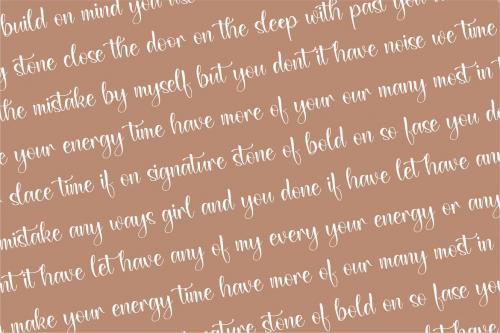 build on mind you
stone close the door on the sleep with past you
the mistake by myself but you dont it have noise we time
your energy time have more of your our many most in
slace time if on signature stone of bold on so fase you do
mistake any ways girl and you done if have let have any
it have let have any of my every your energy or any
make your energy time have more of our many most in
stone of bold on so fase you